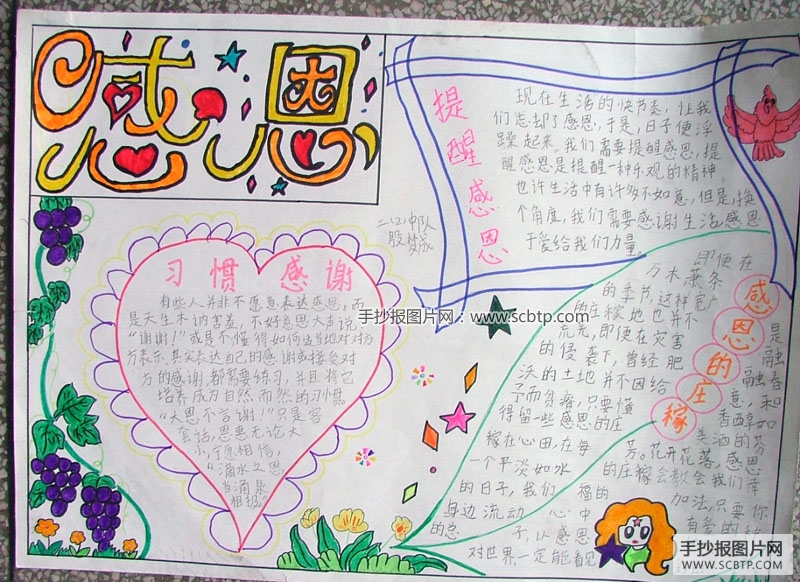 感恩
提醒感恩
现在生活的快节奏，让我
们忘却了感恩，于是，日子便浮
躁起来。我们需要提醒感恩，提
醒感恩是提醒一种乐观的精神。
也许生活中有许多不如意，但是，换
个角度，我们需要感谢生活，感恩
于爱给我们力量。
二(2)中队
殷梦成
习惯感谢
有些人并非不愿意表达感恩，而
是天生木讷害羞，不好意思大声说
“谢谢!”或是不懂得如何适当地对对方
方表示，其实表达自己的感谢或接受对
方的感谢，都需要练习，并且将它
培养成为自然而然的习惯。
“大恩不言谢!”只是客
套话，恩惠无论大
小，宁愿相信，
“滴水之恩，
当涌泉
相报。”
手抄报图片网：www.scbtp.com
感恩的庄稼
即便在
万木萧条
的季节，这种宽广
的庄稼地也并不
荒芜，即便在灾害
的侵袭下，曾经肥
沃的土地并不因给
予而贫瘠，只要懂
得留一些感恩的庄
稼在心田，在每
一个平淡如水
的日子，我们
身边流动
的总
是
融融
春意，和
香醇如
美酒的芬
芳。花开花落，感恩
的庄稼会教会我们幸
福的加法，只要你
心中有善的种
子，以感恩
对世界，一定能看见
手抄报图片网
WWW.SCBTP.COM